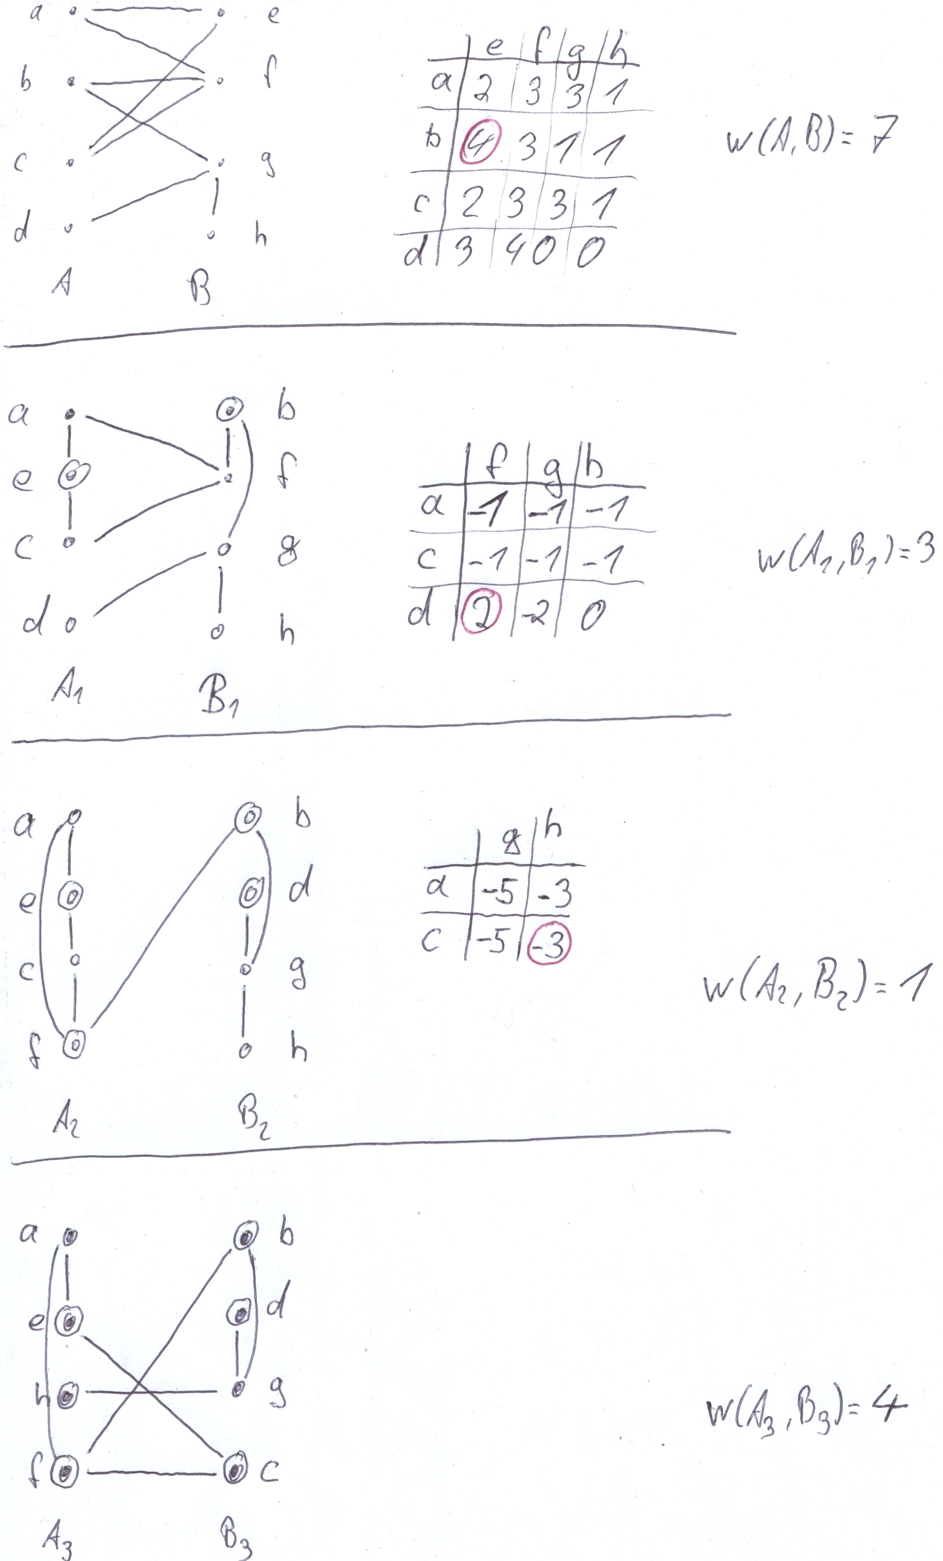 a e
b f
c g
d h
A B
e f g h
a 2 3 3 1
b 4 3 1 1
c 2 3 3 1
d 3 4 0 0
w(A,B) = 7
a b
e f
c g
d h
A₁ B₁
f g h
a -1 -1 -1
c -1 -1 -1
d 2 -2 0
w(A₁,B₁) = 3
a b
e d
c g
f h
A₂ B₂
g h
a -5 -3
c -5 -3
w(A₂,B₂) = 1
a b
e d
h g
f c
A₃ B₃
w(A₃,B₃) = 4